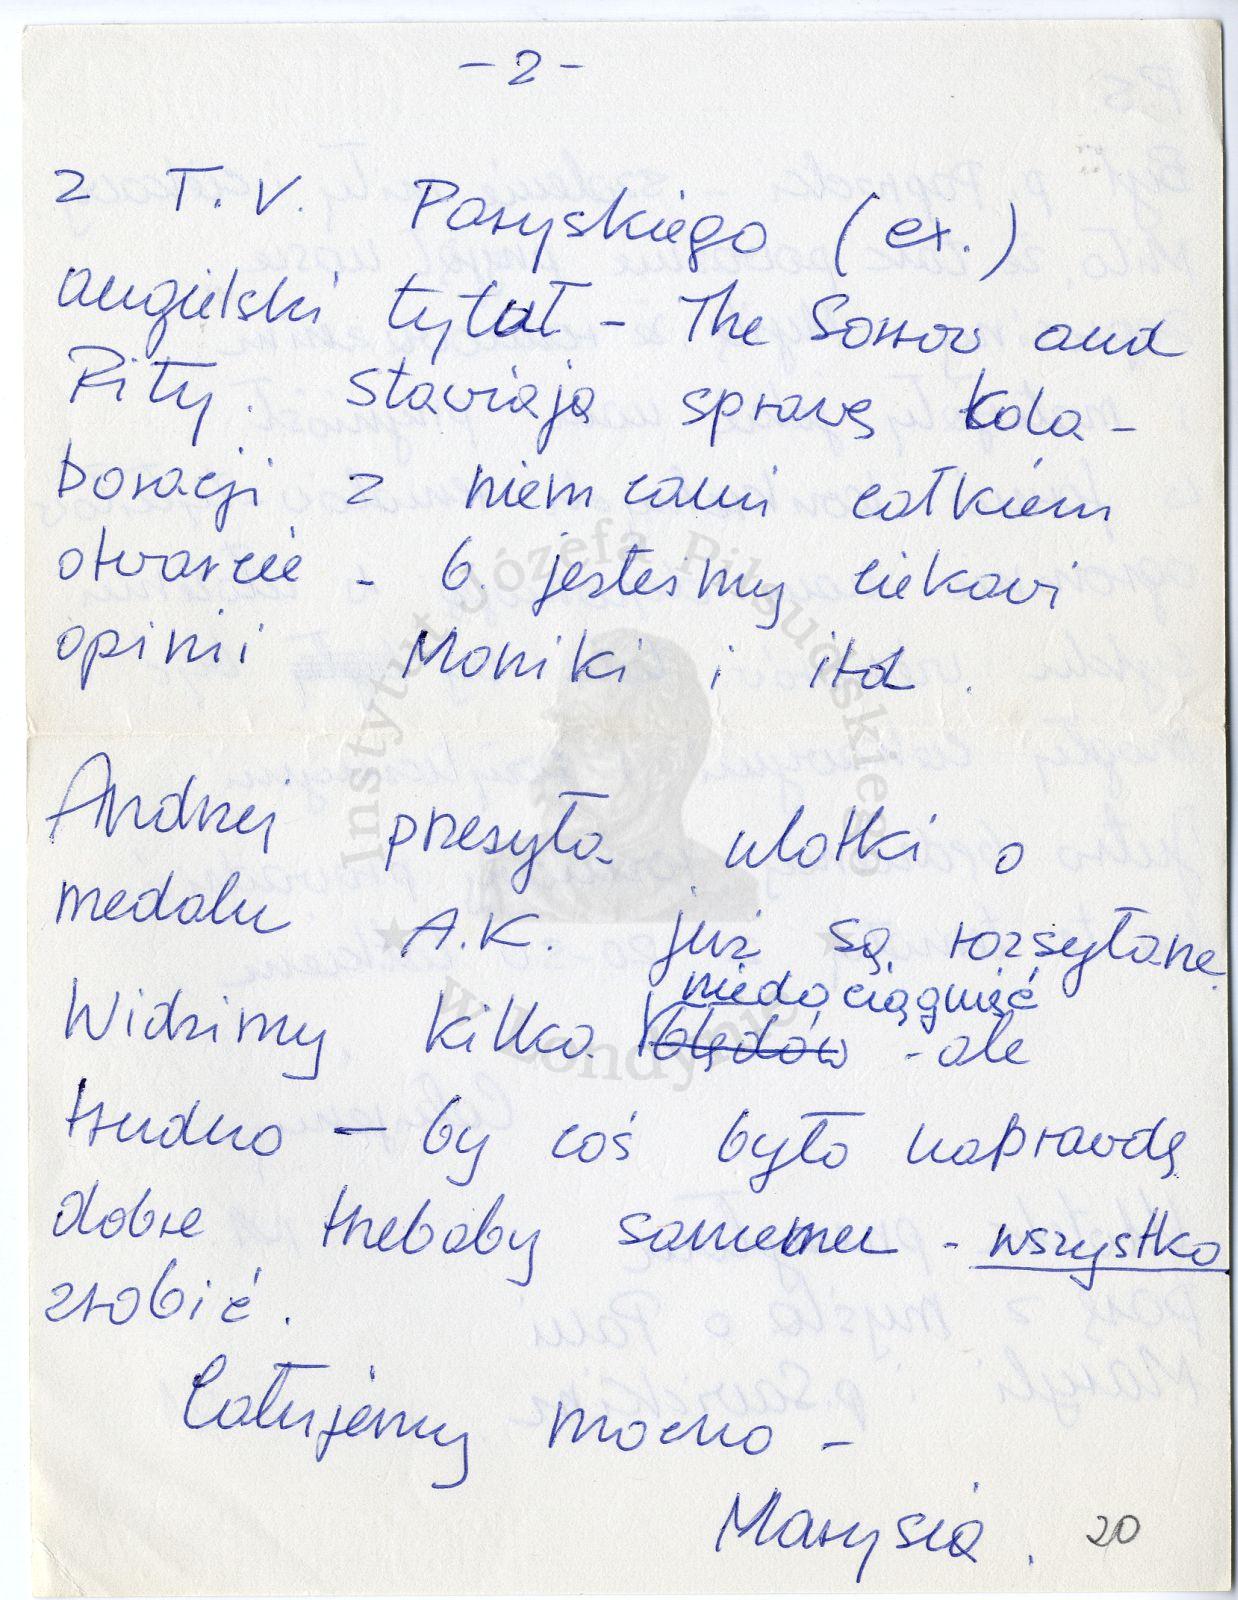 - 2 -
z T.V. Paryskiego (ex.)
angielski tytuł - The Sorrow and
Pity. Stawiają sprawę kola-
boracji z niemcami całkiem
otwarcie - b. jesteśmy ciekawi
opinii Moniki i itd.
Andrzej przesyła ulotki o
medalu A.K. już są rozsyłane.
niedociągnięć
Widzimy kilka błędów - ale
trudno - by coś było naprawdę
dobre trzebaby samemu - wszystko
zrobić.
Całujemy mocno -
Marysia.
20
Instytut Józefa Piłsudskiego
w Londynie